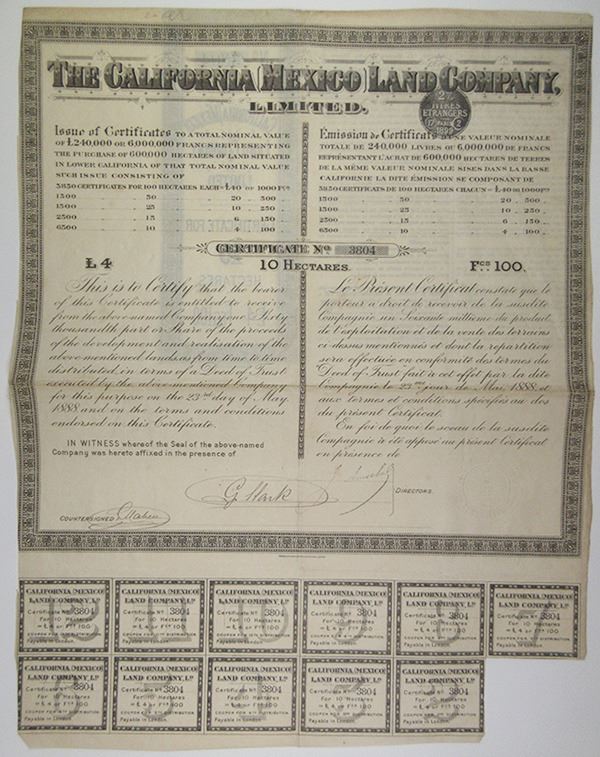 THE CALIFORNIA (MEXICO) LAND COMPANY,
LIMITED.
2%
TITRES
ETRANGERS
1899
Issue of Certificates TO A TOTAL NOMINAL VALUE
OF £240,000 OR 6,000,000 FRANCS REPRESENTING
THE PURCHASE OF 600,000 HECTARES OF LAND SITUATED
IN LOWER CALIFORNIA OF THAT TOTAL NOMINAL VALUE
SUCH ISSUE CONSISTING OF
3850 CERTIFICATES FOR 100 HECTARES EACH = £40 OR 1000 Fcs
1500 .. 50 .. 20 .. 500 ..
1500 .. 25 .. 10 .. 250 ..
2500 .. 15 .. 6 .. 150 ..
6500 .. 10 .. 4 .. 100 ..
Emission de Certificats D'UNE VALEUR NOMINALE
TOTALE DE 240,000 LIVRES OU 6,000,000 DE FRANCS
REPRÉSENTANT L'ACHAT DE 600,000 HECTARES DE TERRES
DE LA MÊME VALEUR NOMINALE SISES DANS LA BASSE
CALIFORNIE LA DITE EMISSION SE COMPOSANT DE
3850 CERTIFICATS DE 100 HECTARES CHACUN = £40 OU 1000 Fcs
1500 .. 50 .. 20 .. 500 ..
1500 .. 25 .. 10 .. 250 ..
2500 .. 15 .. 6 .. 150 ..
6500 .. 10 .. 4 .. 100 ..
CERTIFICATE No 3804
£4 10 HECTARES. Fcs 100.
This is to Certify that the bearer
of this Certificate is entitled to receive
from the above-named Company one Sixty
thousandth part or Share of the proceeds
of the development and realisation of the
above mentioned lands as from time to time
distributed, in terms of a Deed of Trust
executed by the above mentioned Company
for this purpose on the 23rd day of May
1888 and on the terms and conditions
endorsed on this Certificate.
IN WITNESS whereof the Seal of the above-named
Company was hereto affixed in the presence of
Le Présent Certificat constate que le
porteur a droit de recevoir de la susdite
Compagnie un Soixante millième du produit
de l'exploitation et de la vente des terrains
ci-dessus mentionnés et dont la repartition
sera effectuée en conformité des termes du
Deed of Trust fait à cet effet par la dite
Compagnie le 23me jour de Mai 1888 et
aux termes et conditions spécifiés au dos
du présent Certificat.
En foi de quoi le sceau de la susdite
Compagnie a été apposé au présent Certificat
en présence de
DIRECTORS.
COUNTERSIGNED
CALIFORNIA (MEXICO)
LAND COMPANY, Ld.
Certificate No 3804
For 10 Hectares
= £4 or Fcs 100
Payable in London.
CALIFORNIA (MEXICO)
LAND COMPANY, Ld.
Certificate No 3804
For 10 Hectares
= £4 or Fcs 100
Payable in London.
CALIFORNIA (MEXICO)
LAND COMPANY, Ld.
Certificate No 3804
For 10 Hectares
= £4 or Fcs 100
Payable in London.
CALIFORNIA (MEXICO)
LAND COMPANY, Ld.
Certificate No 3804
For 10 Hectares
= £4 or Fcs 100
Payable in London.
CALIFORNIA (MEXICO)
LAND COMPANY, Ld.
Certificate No 3804
For 10 Hectares
= £4 or Fcs 100
Payable in London.
CALIFORNIA (MEXICO)
LAND COMPANY, Ld.
Certificate No 3804
For 10 Hectares
= £4 or Fcs 100
Payable in London.
CALIFORNIA (MEXICO)
LAND COMPANY, Ld.
Certificate No 3804
For 10 Hectares
= £4 or Fcs 100
Payable in London.
CALIFORNIA (MEXICO)
LAND COMPANY, Ld.
Certificate No 3804
For 10 Hectares
= £4 or Fcs 100
Payable in London.
CALIFORNIA (MEXICO)
LAND COMPANY, Ld.
Certificate No 3804
For 10 Hectares
= £4 or Fcs 100
Payable in London.
CALIFORNIA (MEXICO)
LAND COMPANY, Ld.
Certificate No 3804
For 10 Hectares
= £4 or Fcs 100
Payable in London.
CALIFORNIA (MEXICO)
LAND COMPANY, Ld.
Certificate No 3804
For 10 Hectares
= £4 or Fcs 100
Payable in London.